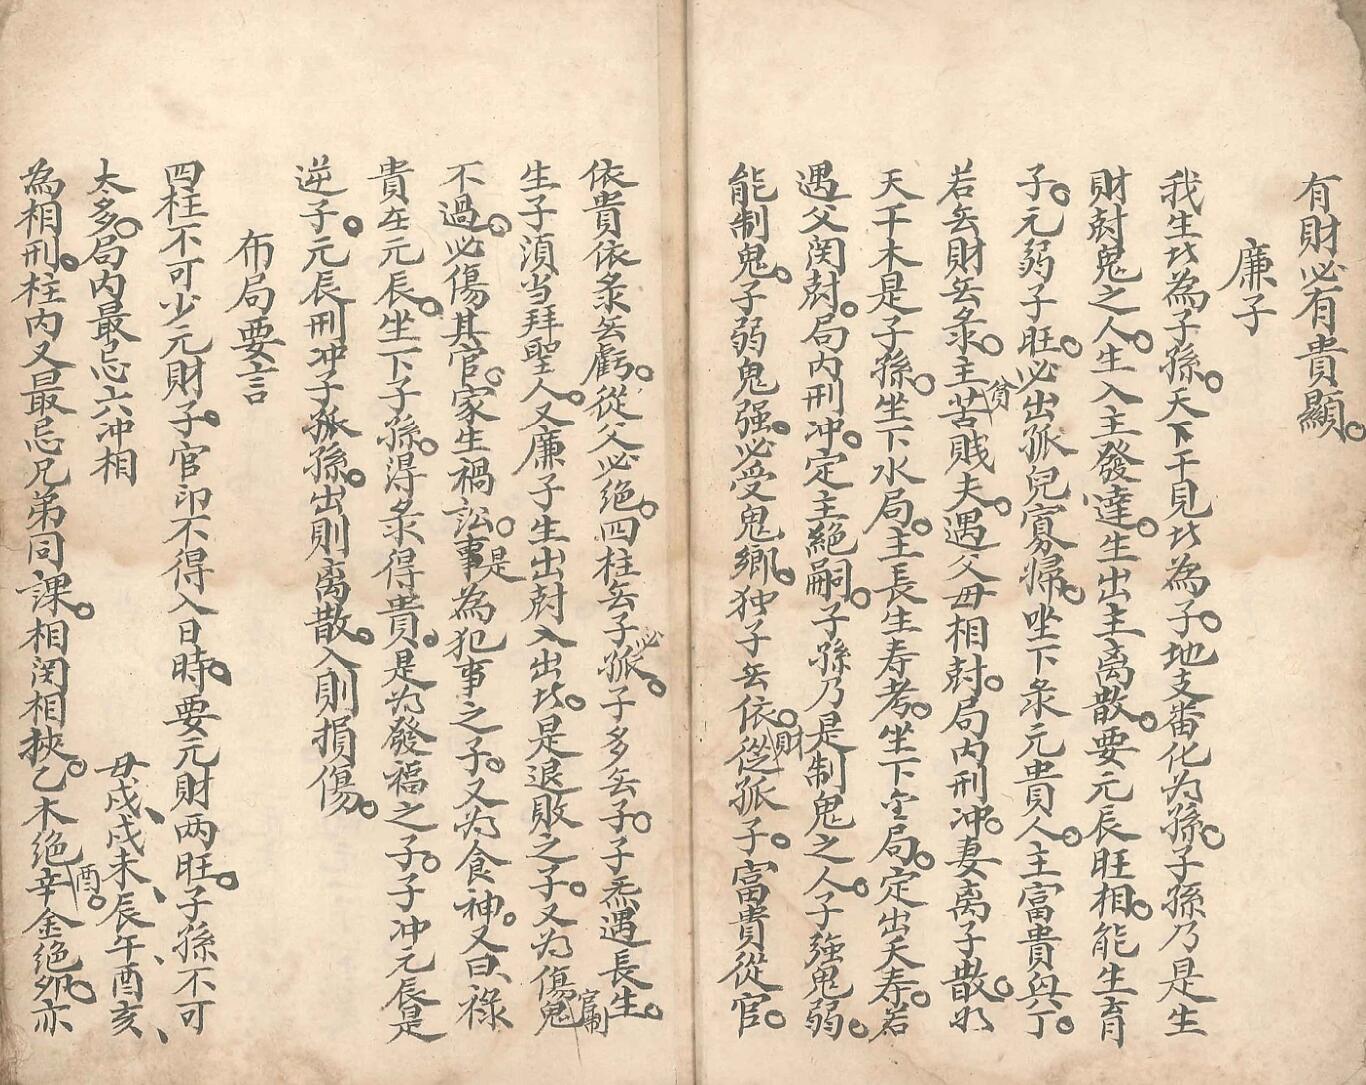 有財必有貴顯。
廉子
我生比為子孫。天下干見比為子。地支番化为孫。子孫乃是生
財尅鬼之人。生入主發達。生出主离散。要元辰旺相。能生育
子。元弱子旺。必出孤兒寡婦。坐下彔元貴人。主富貴與丁。
若無財無彔。主貧苦賤夫。遇父母相尅。局内刑冲。妻离子散。如
天干木是子孫。坐下水局。主長生寿考。坐下金局。定出夭寿。若
遇父母尅。局内刑冲。定主絕嗣。子孫乃是制鬼之人。子強鬼弱。
能制鬼。子弱鬼强。必受鬼鄉。独子無依。從財孤子。富貴從官。
依貴依彔無虧。從父必絕。四柱無子必孤。子多無子。子炁遇長生。
生子湏当拜聖人。又廉子生出尅入出比。是退敗之子。又为傷官制鬼
不過。必傷其官。家生禍訟。事是為犯事之子。又为食神。又曰祿
貴在元辰。坐下子孫。得彔得貴。是为發福之子。子冲元辰是
逆子。元辰刑冲子孤孫。出則离散。入則損傷。
布局要言
四柱不可少元財子。官印不得入日時。要元財两旺。子孫不可
太多。局内最忌六冲相 丑戌、戌未、辰午酉亥、
為相刑。柱内又最忌兄弟同課。相関相挾。乙木絕辛酉。金絕卯亦